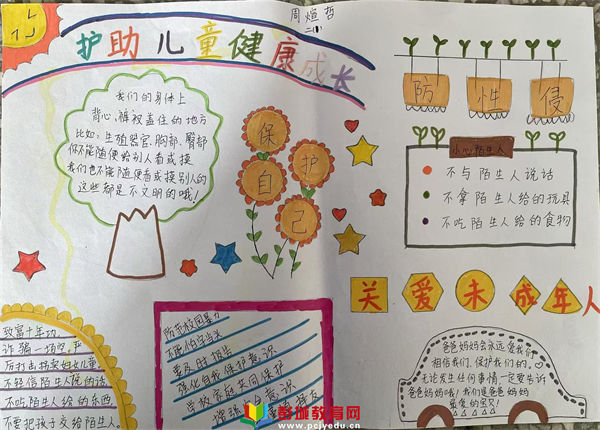 周煊哲
二(1)
护助儿童健康成长
我们的身体上
背心、裤衩盖住的地方
比如:生殖器官、胸部、臀部
你不能随便给别人看或摸
我们也不能随便看或摸别人的
这些都是不文明的哦!
保
护
自
己
防性侵
小心陌生人
不与陌生人说话
不拿陌生人给的玩具
不吃陌生人给的食物
关爱未成年人
致富十年功
诈骗一场空,严
后打击拐卖妇女儿童
不轻信陌生人的话
不吃陌生人给的东西
不要把孩子交给陌生人。
防范校园暴力
要及时报告
强化自我保护意识
学校家庭共同保护
爸爸妈妈会永远爱我们
相信我们,保护我们的。
无论发生任何事情一定要告诉
爸爸妈妈哦!我们是爸爸妈妈
最爱的宝贝!
彭城教育网
www.pcjyedu.cn